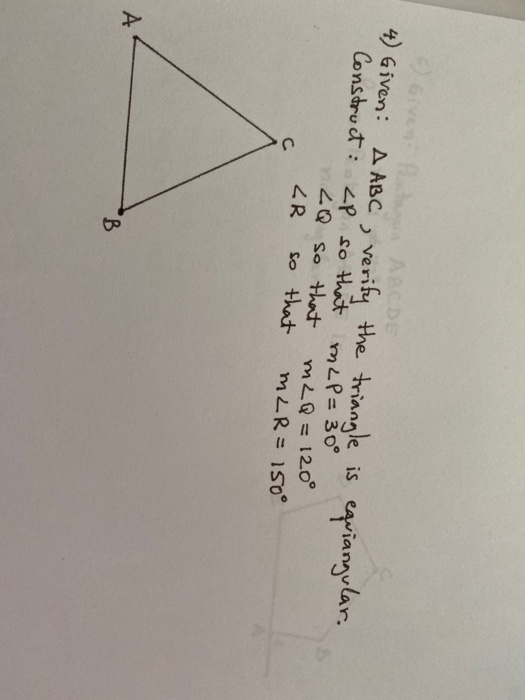 4) Given: △ABC, verify the triangle is equiangular.
Construct: ∠P so that m∠P = 30°
∠Q so that m∠Q = 120°
∠R so that m∠R = 150°
C
A
B